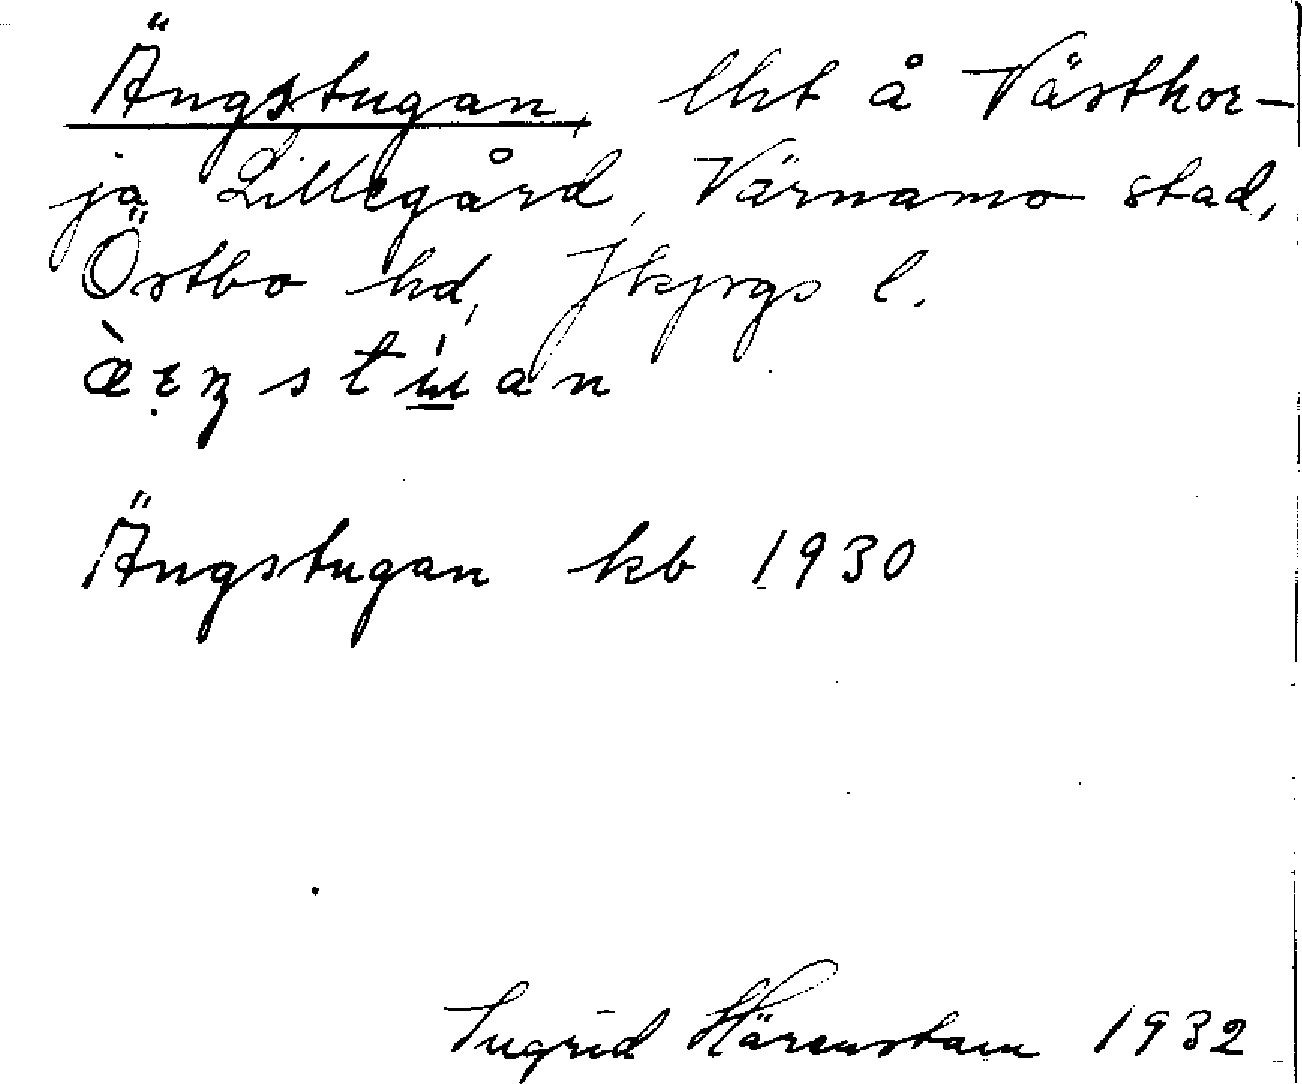 Ängstugan, lht å Västhor-
ja Lillegård, Värnamo stad,
Östbo hd, Jkpgs l.
Ängstugan kb 1930
Ingrid Härenstam 1932